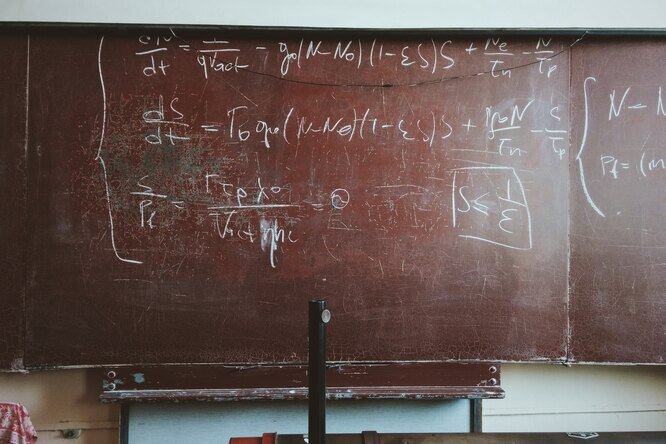 dN/dt = I/qVact − g0(N−N0)(1−εS)S + Ne/τn − N/τp
dS/dt = Γ0 g0(N−N0)(1−εS)S + N/τn − S/τp
S/Pf = Γτpλ0/Vact ηhc = ϑ
S ≤ 1/ε
N − N
Pf = (m